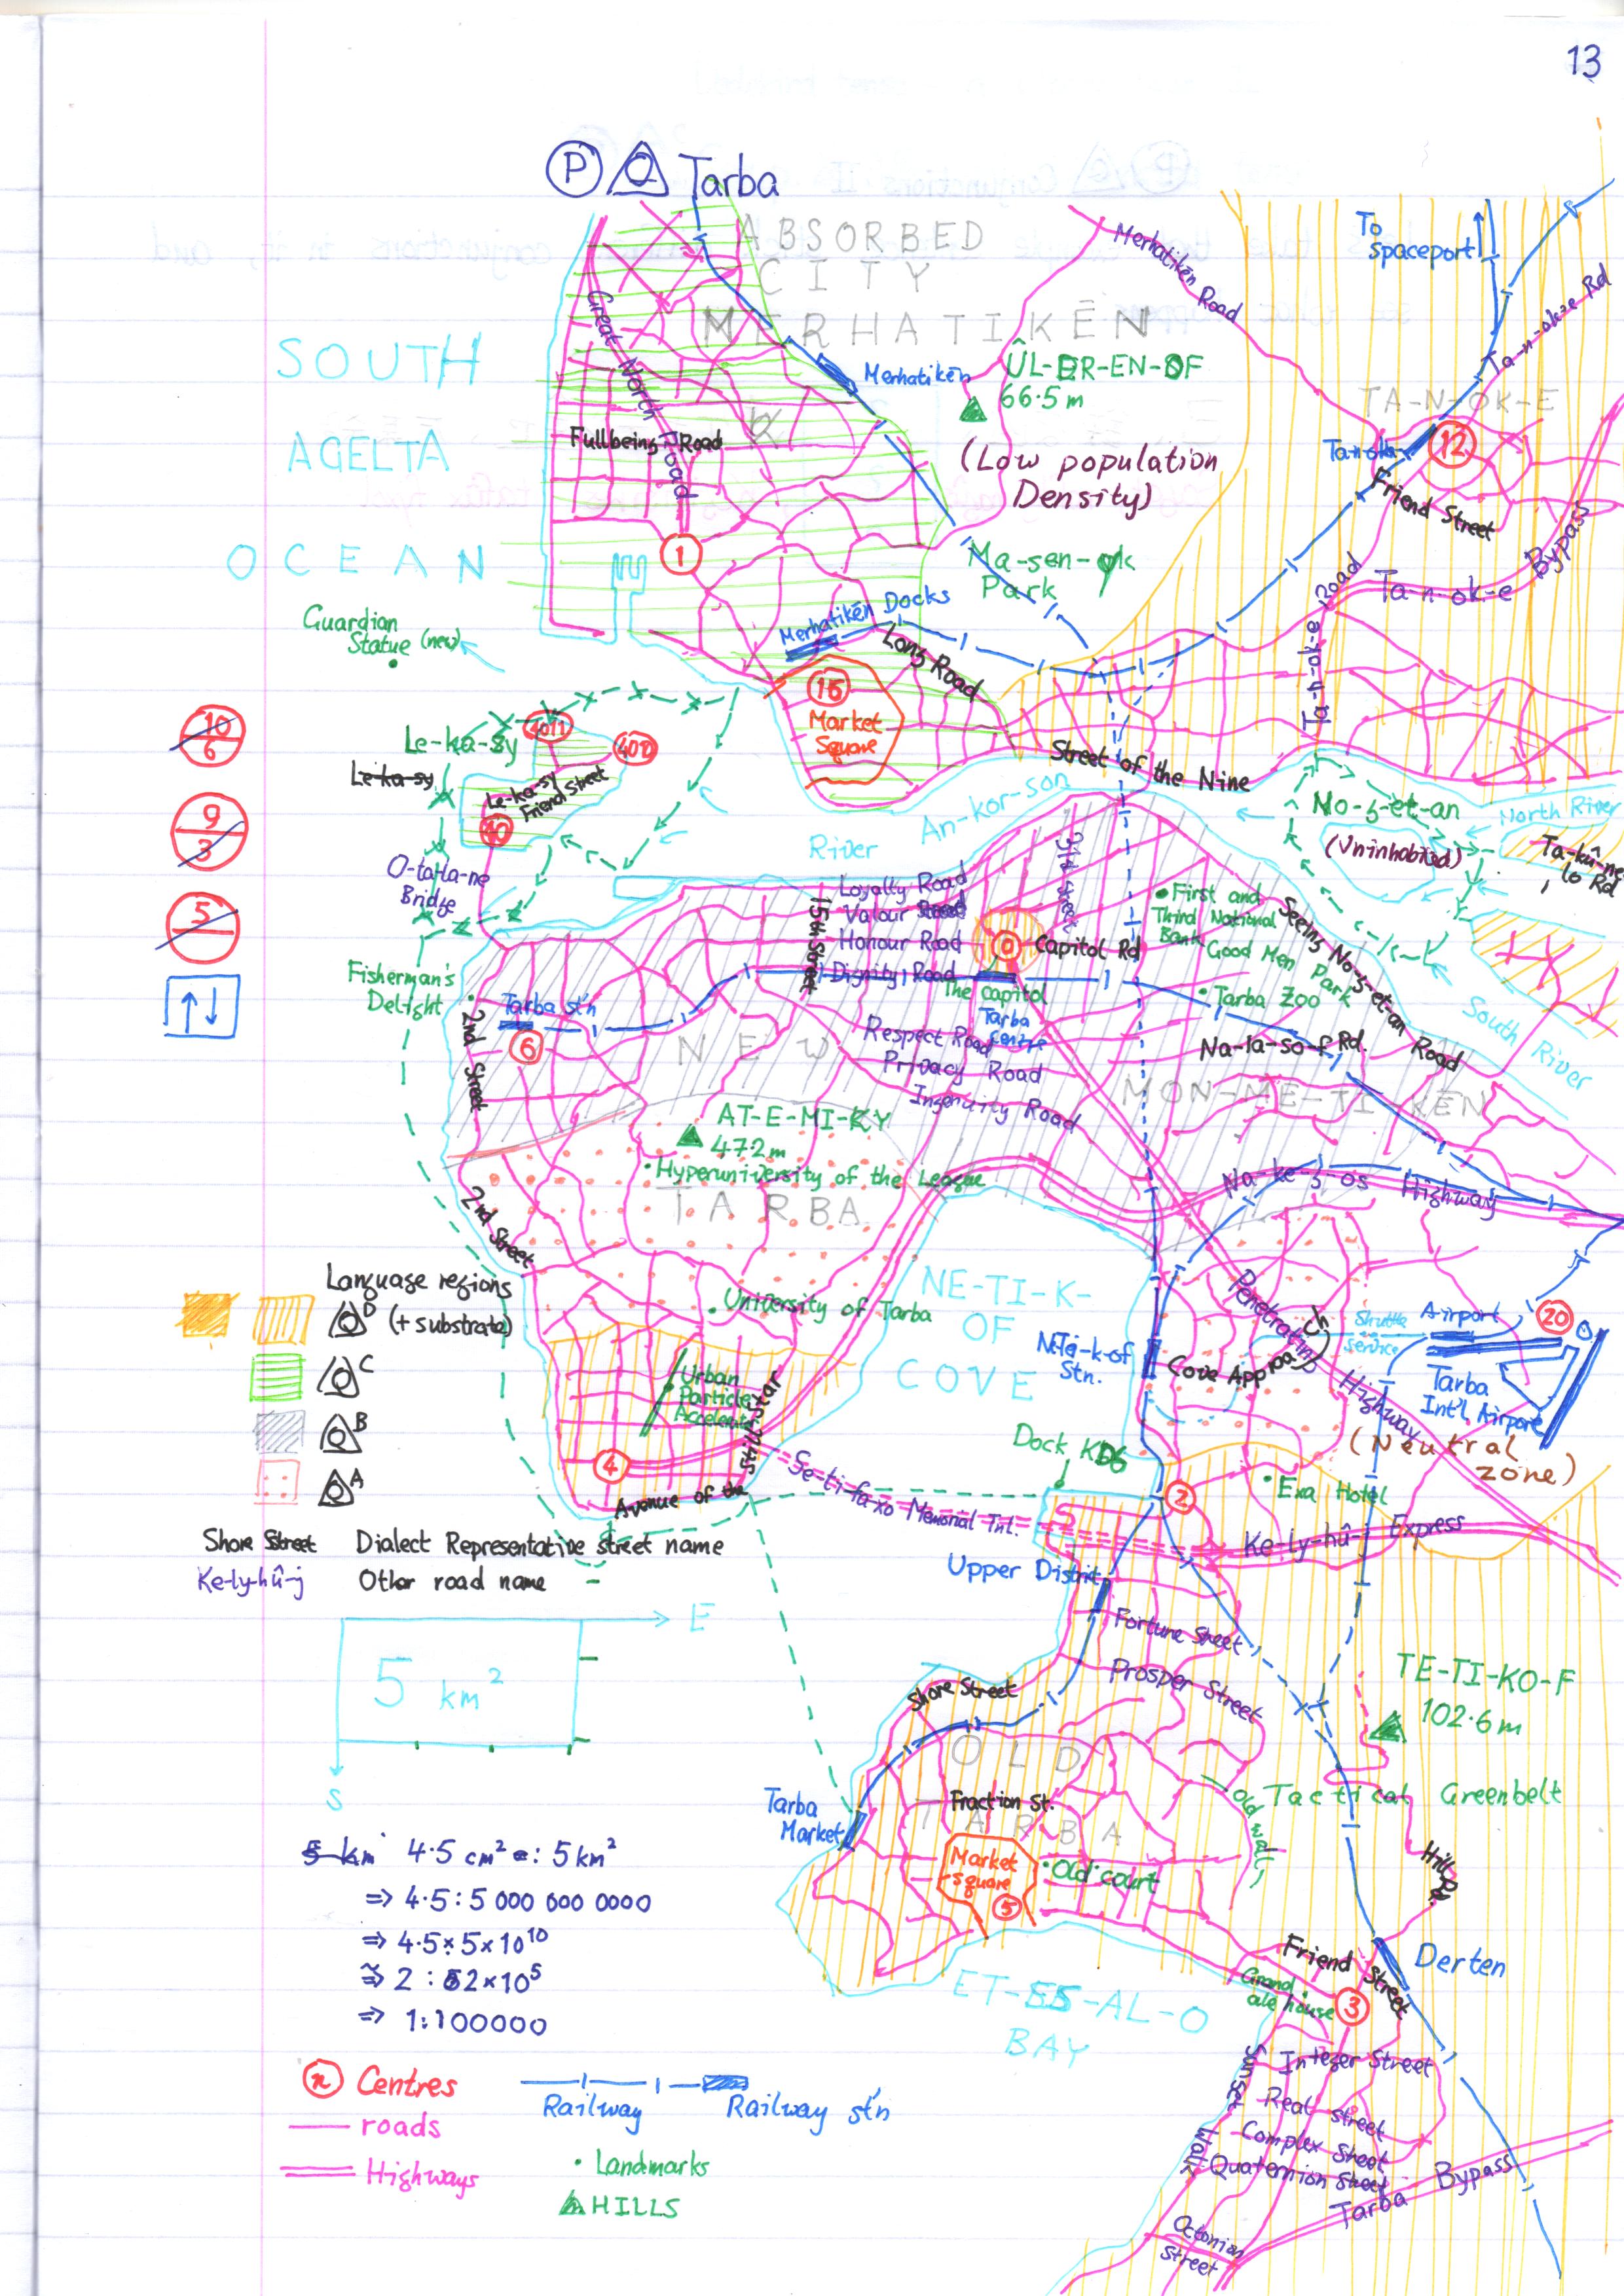 13
P Tarba
ABSORBED
CITY
MERHATIKĒN
To
Spaceport
Merhatikēn Road
Ta-n-ok-e Rd
Great North Road
SOUTH
AGELTA
OCEAN
Merhatikēn
ÛL-ER-EN-OF
66.5 m
(Low population
Density)
TA-N-OK-E
12
Friend Street
Fullbeing Road
1
Ma-sen-ok
Park
Ta-n-ok-e
Bypass
Ta-n-ok-e Road
Guardian
Statue (new)
Merhatikēn Docks
Long Road
16
Market
Square
10
6
Le-ka-sy
Le-ka-sy
401
402
Le-ka-sy
Friend Street
10
Street of the Nine
River
An-kor-son
No-z-et-an
(Uninhabited)
North River
Ta-kû-ne
lo Rd
9
3
O-ta-la-ne
Bridge
5
Loyalty Road
Valour Road
Honour Road
Dignity Road
15th Street
31st Street
0
Capitol Rd
The Capitol
Tarba
Centre
First and
Third National
Bank
Good Men Park
Seeing No-z-et-an Road
Tarba Zoo
South River
Fisherman's
Delight
Tarba st'n
6
2nd Street
NEW
Respect Road
Privacy Road
Ingenuity Road
Na-la-so-f Rd.
MON-ME-TI-KĒN
AT-E-MI-KY
472 m
Hyperuniversity of the League
TARBA
Na-ke-z-os Highway
2nd Street
Language regions
D (+ substrate)
C
B
A
University of Tarba
NE-TI-K-
OF
COVE
Ne-ti-k-of
Stn.
Cove App
Penetrating
Highway
Shuttle
service
Airport
20
Tarba
Int'l Airport
(Neutral
zone)
Urban
Particle
Accelerator
4
Avenue of the
Militstar
Dock KD6
Se-ti-fa-xo Memorial Tnl.
2
Exa Hotel
Ke-ly-hû-j Express
Shore Street Dialect Representative street name
Ke-ly-hû-j Other road name
Upper District
E
5 km²
S
Fortune Street
Prosper Street
TE-TI-KO-F
102.6 m
Shore Street
OLD
TARBA
Fraction St.
Tarba
Market
Market
square
5
Old court
Old wall
Tactical Greenbelt
Hill Rd.
5 km 4.5 cm² : 5 km²
⇒ 4.5 : 5 000 000 0000
⇒ 4.5 : 5×10¹⁰
⇒ 2 : 2×10⁵
⇒ 1:100000
ET-ES-AL-O
BAY
Friend Street
Derten
Grand
ale house
3
Integer Street
Real Street
Complex Street
Quaternion Street
Sunset Walk
Octonion
Street
Tarba Bypass
n Centres
roads
Highways
Railway
Railway st'n
Landmarks
HILLS